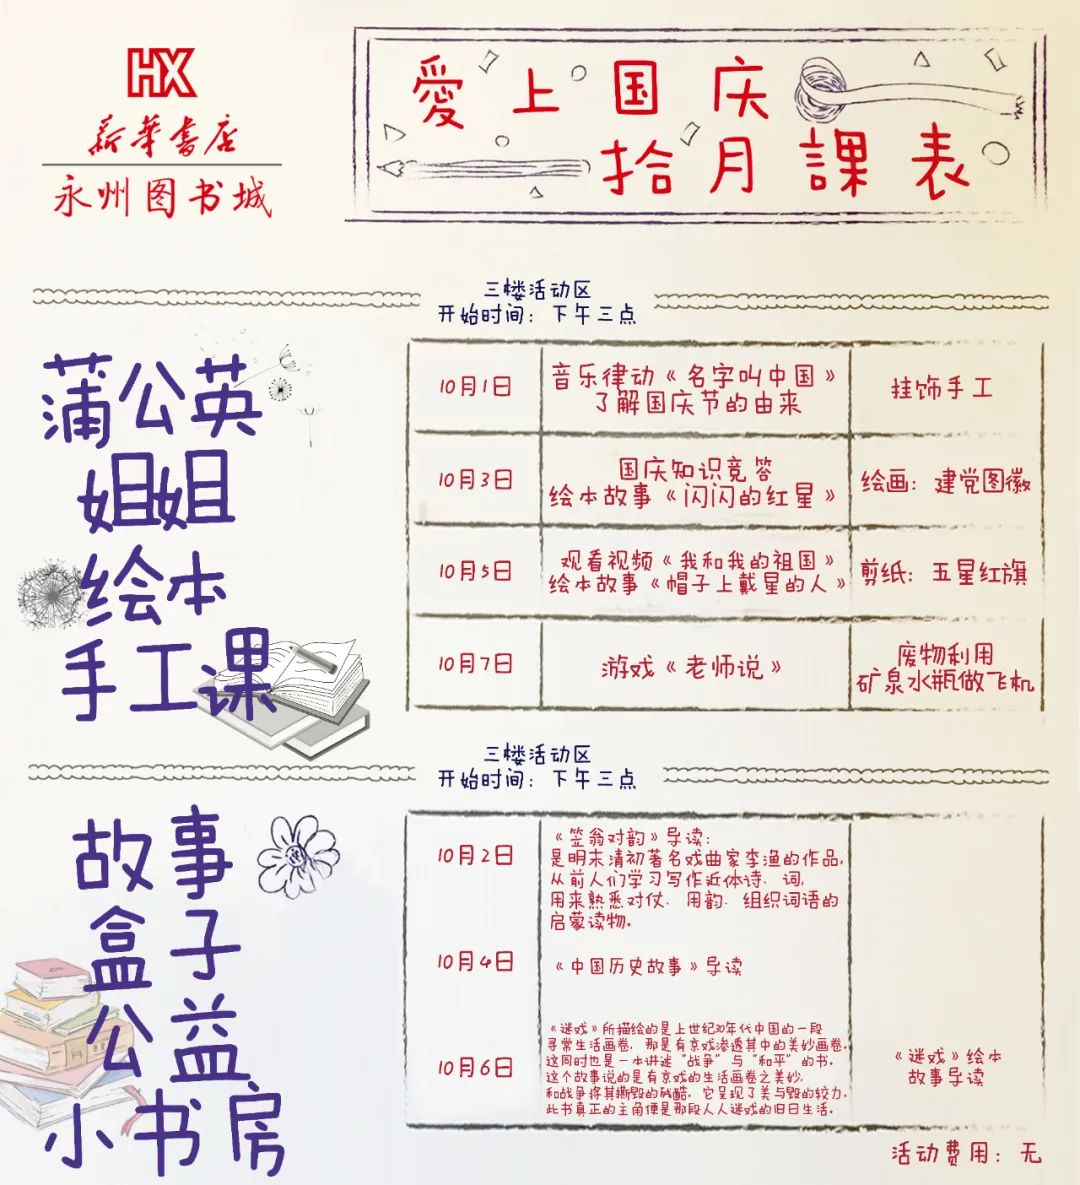 HX
新華書店
永州图书城
愛上国庆
拾月課表
三楼活动区
开始时间：下午三点
蒲公英
姐姐
绘本
手工课
10月1日
音乐律动《名字叫中国》
了解国庆节的由来
挂饰手工
10月3日
国庆知识竞答
绘本故事《闪闪的红星》
绘画：建党图徽
10月5日
观看视频《我和我的祖国》
绘本故事《帽子上戴星的人》
剪纸：五星红旗
10月7日
游戏《老师说》
废物利用
矿泉水瓶做飞机
三楼活动区
开始时间：下午三点
故事
盒子
公益
小书房
10月2日
《笠翁对韵》导读：
是明末清初著名戏曲家李渔的作品，
从前人们学习写作近体诗、词，
用来熟悉对仗、用韵、组织词语的
启蒙读物。
10月4日
《中国历史故事》导读
10月6日
《迷戏》所描绘的是上世纪30年代中国的一段
寻常生活画卷，那是有京戏渗透其中的美妙画卷。
这同时也是一本讲述“战争”与“和平”的书。
这个故事说的是有京戏的生活画卷之美妙，
和战争将其撕毁的残酷。它呈现了美与毁的较力。
此书真正的主角便是那段人人迷戏的旧日生活。
《迷戏》绘本
故事导读
活动费用：无